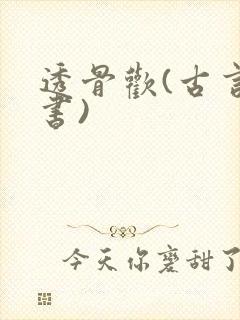 透骨歡(古言
書)
今天你磨甜了